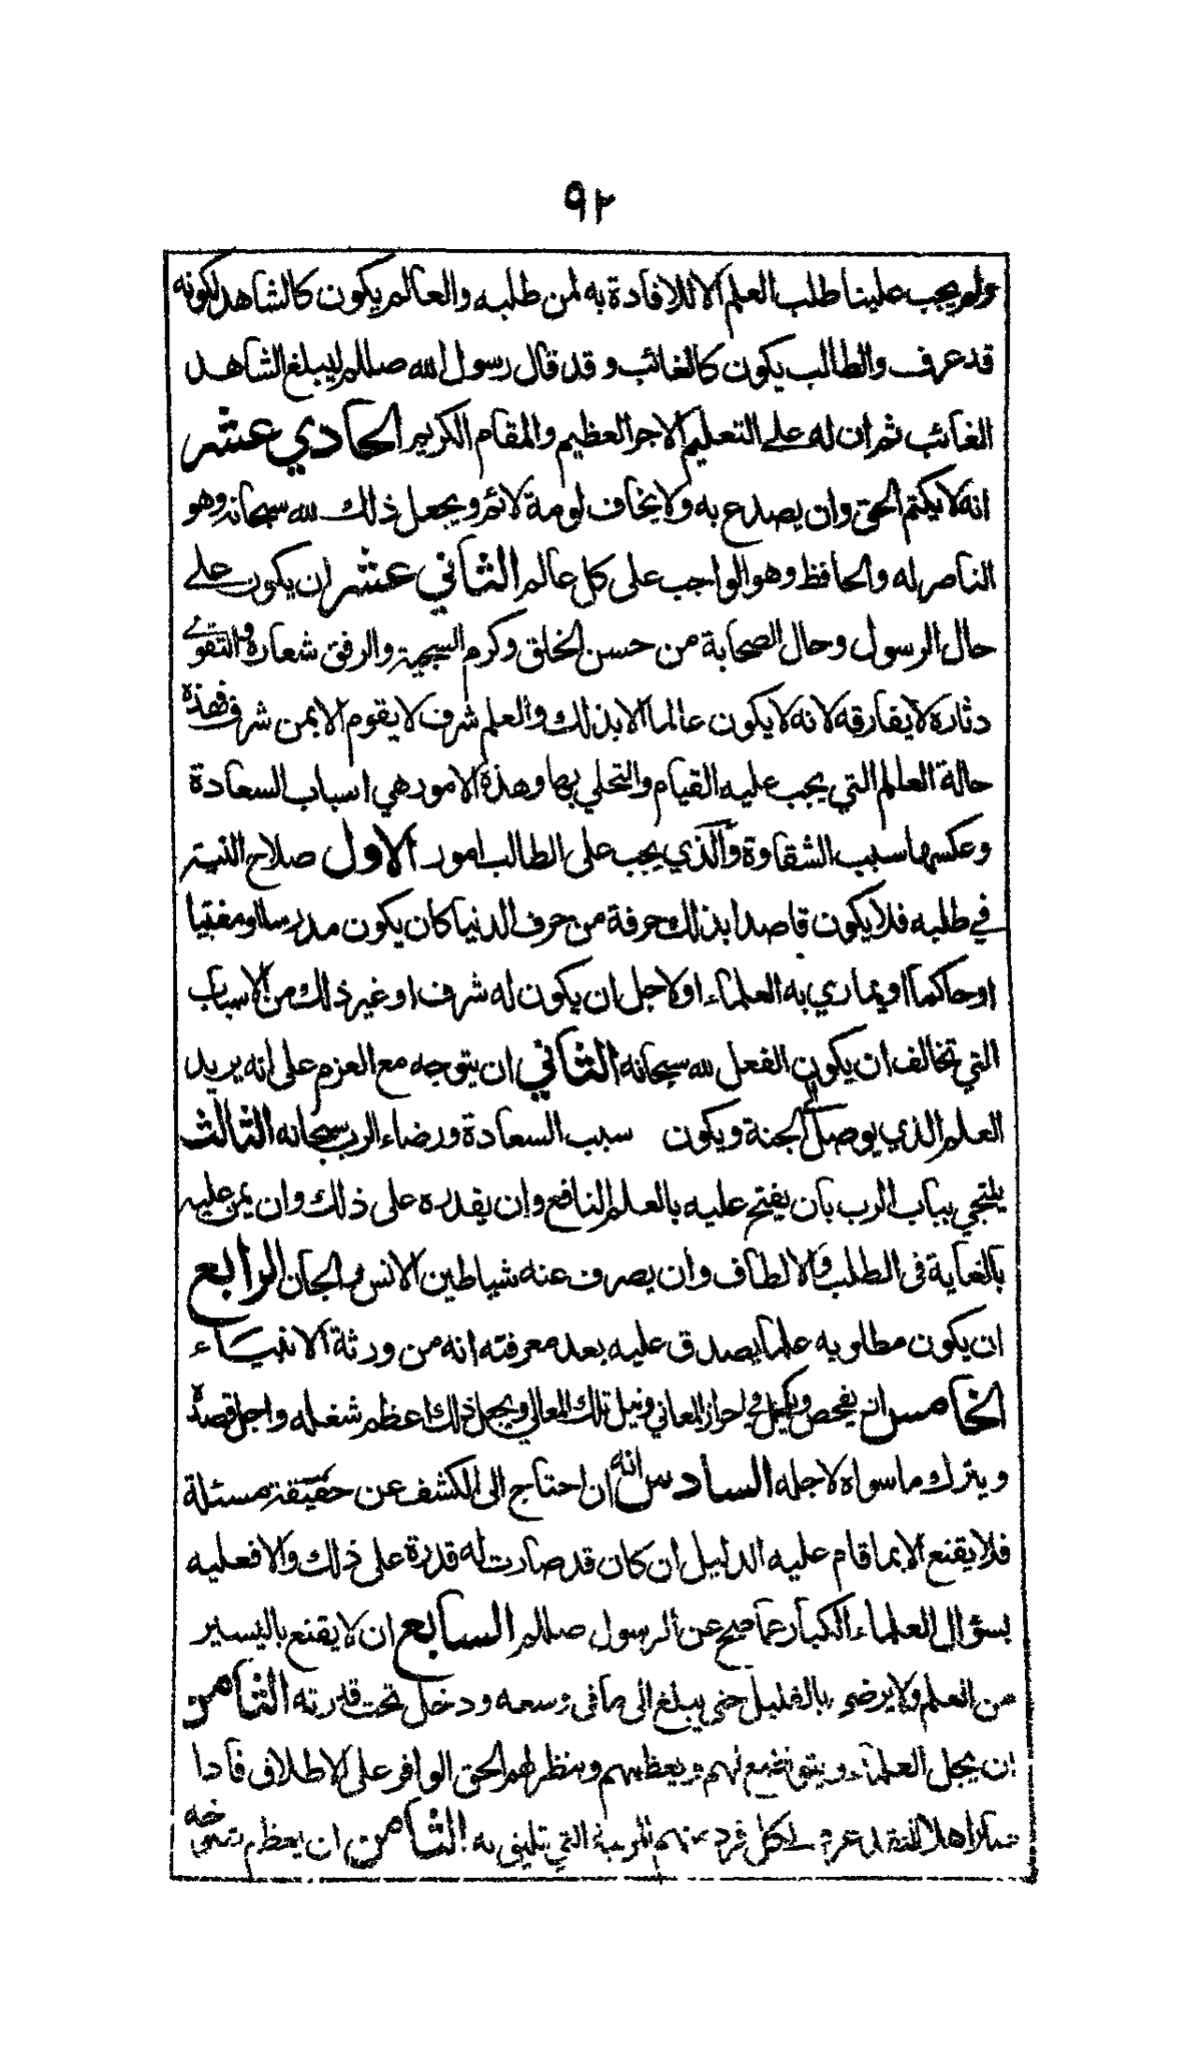 ٩٢
ولم يجب علينا طلب العلم الا للافادة به لمن طلبه والعالم يكون كالشاهد لكونه
قد عرف والطالب يكون كالغائب وقد قال رسول الله صللم ليبلغ الشاهد
الغائب ثم ان له على التعليم الاجر العظيم والمقام الكريم الحادي عشر
انه لا يكتم الحق وان يصدع به ولا يخاف لومة لائم ويجعل ذلك لله سبحانه وهو
الناصر له والحافظ وهو الواجب على كل عالم الثاني عشر ان يكون على
حال الرسول وحال الصحابة من حسن الخلق وكرم السجية والرفق شعاره والتقوى
دثاره لا يفارقه لانه لا يكون عالما الا بذلك والعلم شرف لا يقوم الا بمن شرف فهذه
حالة العالم التي يجب عليه القيام والتحلي بها وهذه الامور هي اسباب السعادة
وعكسها سبب الشقاوة والذي يجب على الطالب امور الاول صلاح النية
في طلبه فلا يكون قاصدا بذلك حرفة من حرف الدنيا كان يكون مدرسا او مفتيا
او حاكما او يماري به العلماء او لاجل ان يكون له شرف او غير ذلك من الاسباب
التي تخالف ان يكون الفعل لله سبحانه الثاني ان يتوجه مع العزم على انه يريد
العلم الذي يوصل الى الجنة ويكون سبب السعادة ورضاء الرب سبحانه الثالث
يلتجي بباب الرب بان يفتح عليه بالعلم النافع وان يقدره على ذلك وان يمن عليه
بالغاية في الطلب والالطاف وان يصرف عنه شياطين الانس والجان الرابع
ان يكون مطلوبه علما يصدق عليه بعد معرفته انه من ورثة الانبياء
الخامس ان يفحص ويكمل في احراز المعاني ونيل تلك المعالي ويجعل ذلك اعظم شغله واجل قصده
ويترك ما سواه لاجله السادس انه ان احتاج الى الكشف عن حقيقة مسئلة
فلا يقنع الا بما قام عليه الدليل ان كان قد صارت له قدرة على ذلك والا فعليه
بسؤال العلماء الكبار عما صح عن الرسول صللم السابع ان لا يقنع باليسير
من العلم ولا يرضى بالقليل حتى يبلغ الى ما في وسعه ودخل تحت قدرته الثامن
ان يجل العلماء ويتواضع لهم ويعظمهم وينظر لهم الحق الوافر على الاطلاق فاذا
لكل فرد منهم المرتبة التي تليق به الثامن ان يعظم شيوخه